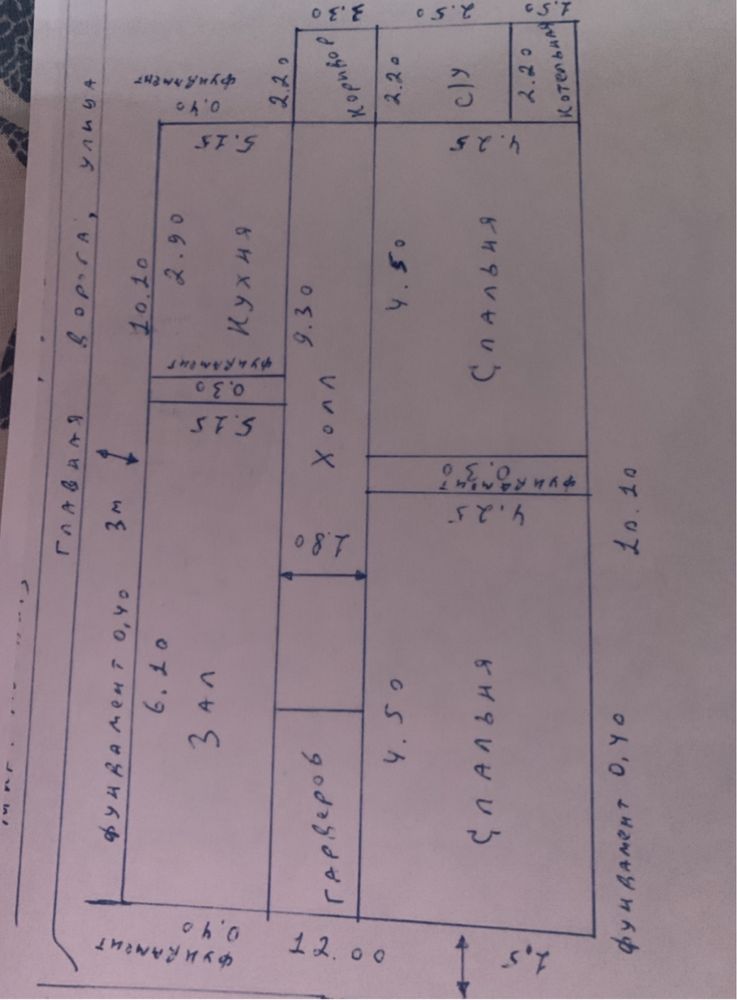 ГЛАВНАЯ ДОРОГА, УЛИЦА
фундамент 0,40 3м 10.10
фундамент
0,40
6.10
ЗАЛ
5.15
0.30
фундамент
2.90
КУХНЯ
5.15
2.20
3.30
КОРИДОР
ГАРДЕРОБ
1.80
ХОЛЛ
9.30
4.50
СПАЛЬНЯ
4.25
фундамент
0.30
4.50
СПАЛЬНЯ
4.25
2.20
2.50
С/У
2.20
1.50
КОТЕЛЬНАЯ
фундамент
0.40
12.00
1,5
фундамент 0,40 10.10